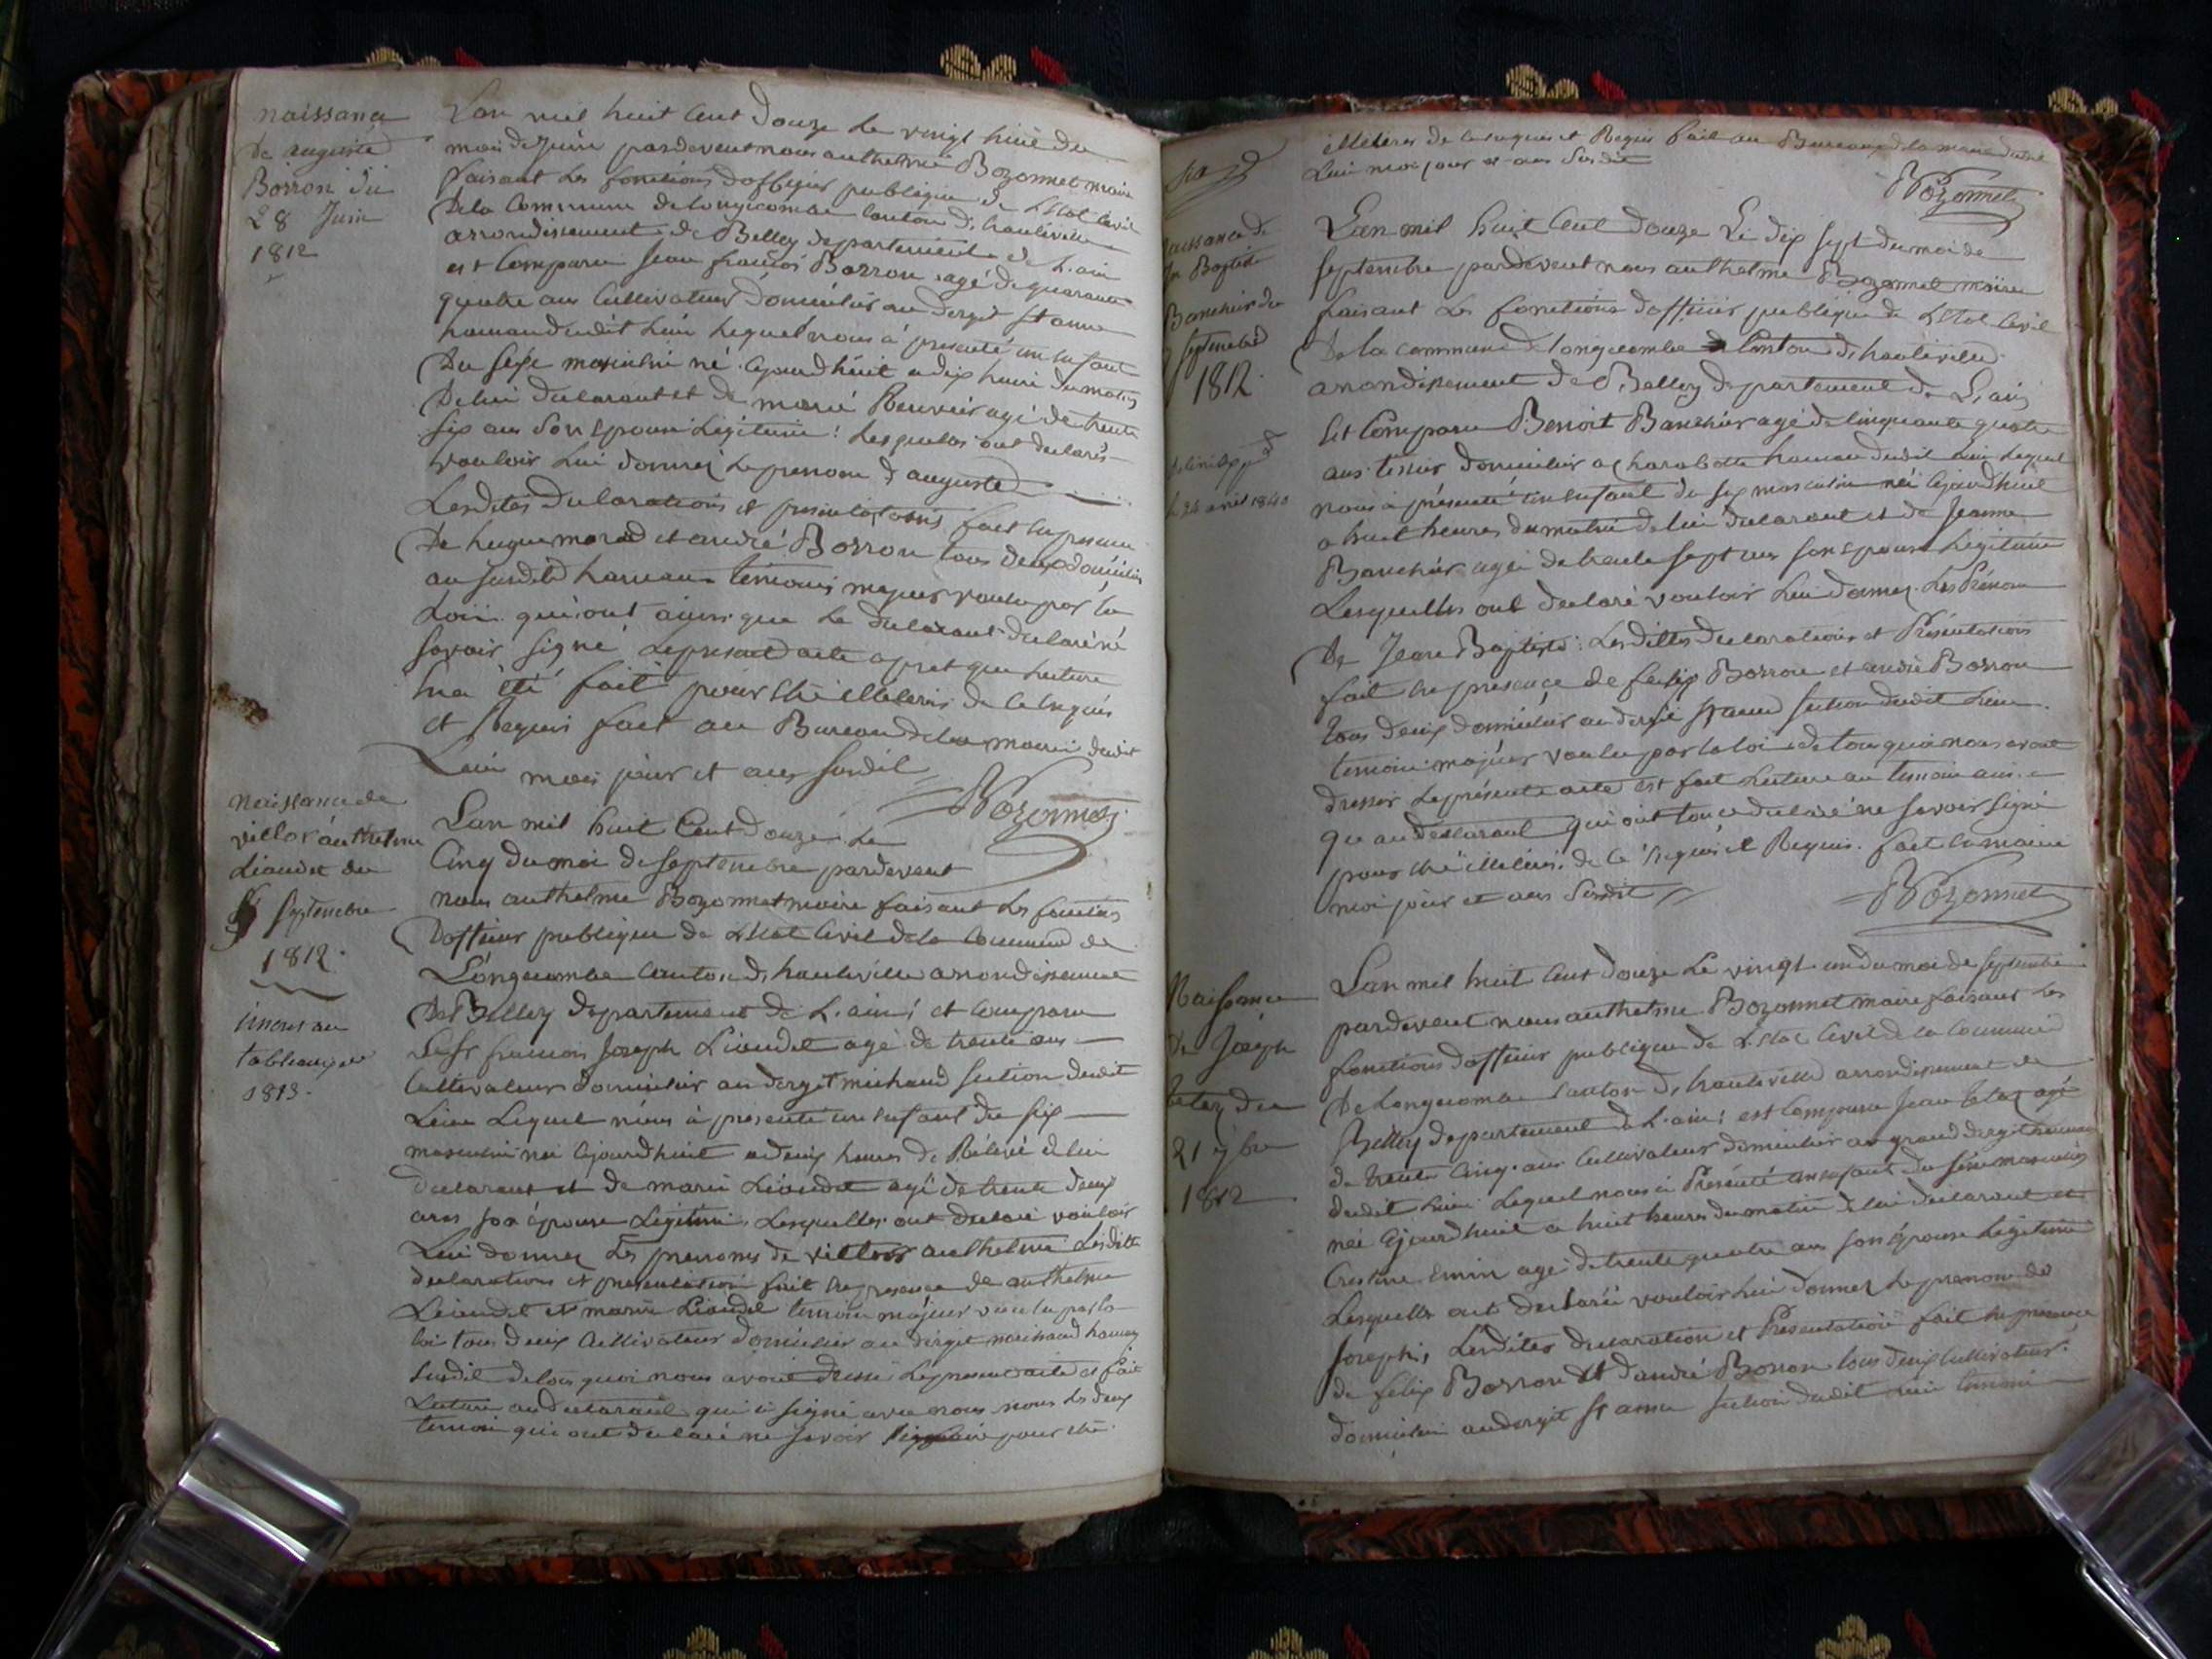 naissance
de auguste
Borron du
28 Juin
1812
L'an mil huit cent douze le vingt huit du
mois de Juin pardevent nous anthelme Bozonnet maire
faisant les fonctions d'officier publique de L'Etat Civil
De la Commune de Longecombe Canton d'hauteville
arrondissement de Belley departement de L'ain
est Comparu Jean francois Borron agé de quarante
quatre ans Cultivateur domicilié au dergit st anne
hameau dudit Lieu Lequel nous à presenté un enfant
Du sexe masculin né Cejourdhuit a dix heure du matin
De lui declarant et de marie agé de trente
six ans son Epouse Legitime : Lesquelles ont declarés
vouloir Lui donner Le prenom d'auguste
Lesdites declarations et presentations fait en presence
De hugue morad et andré Borron tous deux domicilies
au susdit hameau temoins majeur voulu par la
Loix qui ont ainsi que Le declarant declaré ne
savoir signé Le present acte apret que Lecture
En a été fait pour etre illeteres de ce enquis
et Requis fait au Bureau de la mairie dudit
Lieu mois jour et ans susdit
Bozonnet
Naissance de
victor anthelme
Liaudet du
5 Septembre
1812.
inscrit au
tableaux de
1813.
L'an mil huit Cent douze Le
Cinq du moi de septembre pardevent
nous anthelme Bozonnet maire faisant Les fonctions
D'officier publique de L'Etat Civil de la Commune de
Longecombe Canton d'hauteville arrondissement
De Belley departement de L'ain ; est Comparu
Le sr francois Joseph Liaudet agé de trente ans
Cultivateur domicilié au dergit michaud section dudit
Lieu Lequel nous à presenté un enfant du sex
masculin né Cejourdhuit a deux heures de Rélevé de lui
declarant et de marie Liaudet agé de trente deux
ans son épouse Legitime, Lesquelles ont declaré vouloir
Lui donner Les prenoms de victor anthelme Lesdittes
declarations et presentation fait en presence de anthelme
Liaudet et marie Liaudet temoin majeur voulu par la
loi tous deux Cultivateur domicilié au dergit michaud hameau
susdit de tous quoi nous avont dressé Le present acte et fait
Lecture au declarant qui a signé avec nous non Les deux
temoin qui ont declaré ne savoir pour etre
illeteres de ce enquis et Requis fait au Bureaux de la mairie dudit
Lieu moi jour et ans susdit
Bozonnet
naissance de
Jn Baptiste
Banchir du
septembre
1812.
24 avril 1840
L'an mil huit Cent douze Le dix sept du moi de
septembre pardevent nous anthelme Bozonnet maire
faisant Les fonctions d'officier publique de L'Etat Civil
De la commune de Longecombe Canton d'hauteville
arrondissement de Belley departement de L'ain
est Comparu Benoit Banchir agé de Cinquante quatre
ans tessier domicilié a charabotte hameau dudit Lieu Lequel
nous à présenté un enfant du sex masculin né Cejourdhuit
a huit heures du matin de lui declarant et de Jeanne
Banchir agé de trente sept ans son epouse Légitime
Lesquelles ont declaré vouloir Lui donner Les Prénom
De Jean Baptiste : Lesdittes declarations et Présentations
fait en presence de felix Borron et andré Borron
tous deux domicilié au dergit st anne section dudit Lieu
temoin majeur voulu par la loi de tous quoi nous avont
dresser Le présent acte est fait Lecture au temoin ainsi
qu au declarant qui ont tous declaré ne savoir signé
pour etre illeteré de ce enquis et Requis. fait en mairie
moi jour et ans susdit
Bozonnet
Naissance
De Joseph
du
21 7bre
1812
L'an mil huit cent douze Le vingt un du moi de septembre
pardevent nous anthelme Bozonnet maire faisant Les
fonctions d'officier publique de L'Etat Civil de la Commune
De Longecombe Canton d'hauteville arrondissement de
Belley departement de L'ain ; est Comparu Jean agé
de trente Cinq ans Cultivateur domicilié au grand dergit hameau
dudit Lieu Lequel nous à Présenté un enfant du sexe masculin
né Cejourdhuit a huit heures du matin de lui declarant et
Cristine Emin agé de trente quatre ans son épouse Legitime
Lesquelles ont declaré vouloir Lui donner Le prenom de
Joseph, Lesdites declaration et Présentation fait en presence
de félix Borron et d'andré Borron tous deux Cultivateur
domicilié au dergit st anne section dudit Lieu temoin